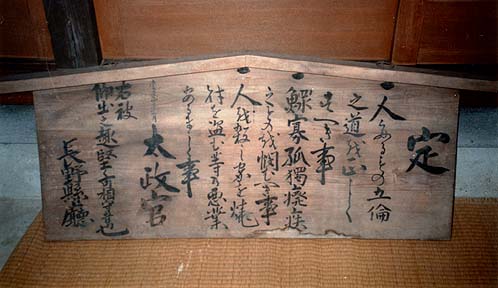 定
一 人たるもの五倫
之道を正しく
すへき事
一 鰥寡孤獨癈疾
のものを憫むへき事
一 人を殺し家を焼
財を盗む等の惡業
あるましく事
太政官
右被
仰出之趣堅可相守者也
長野縣廳